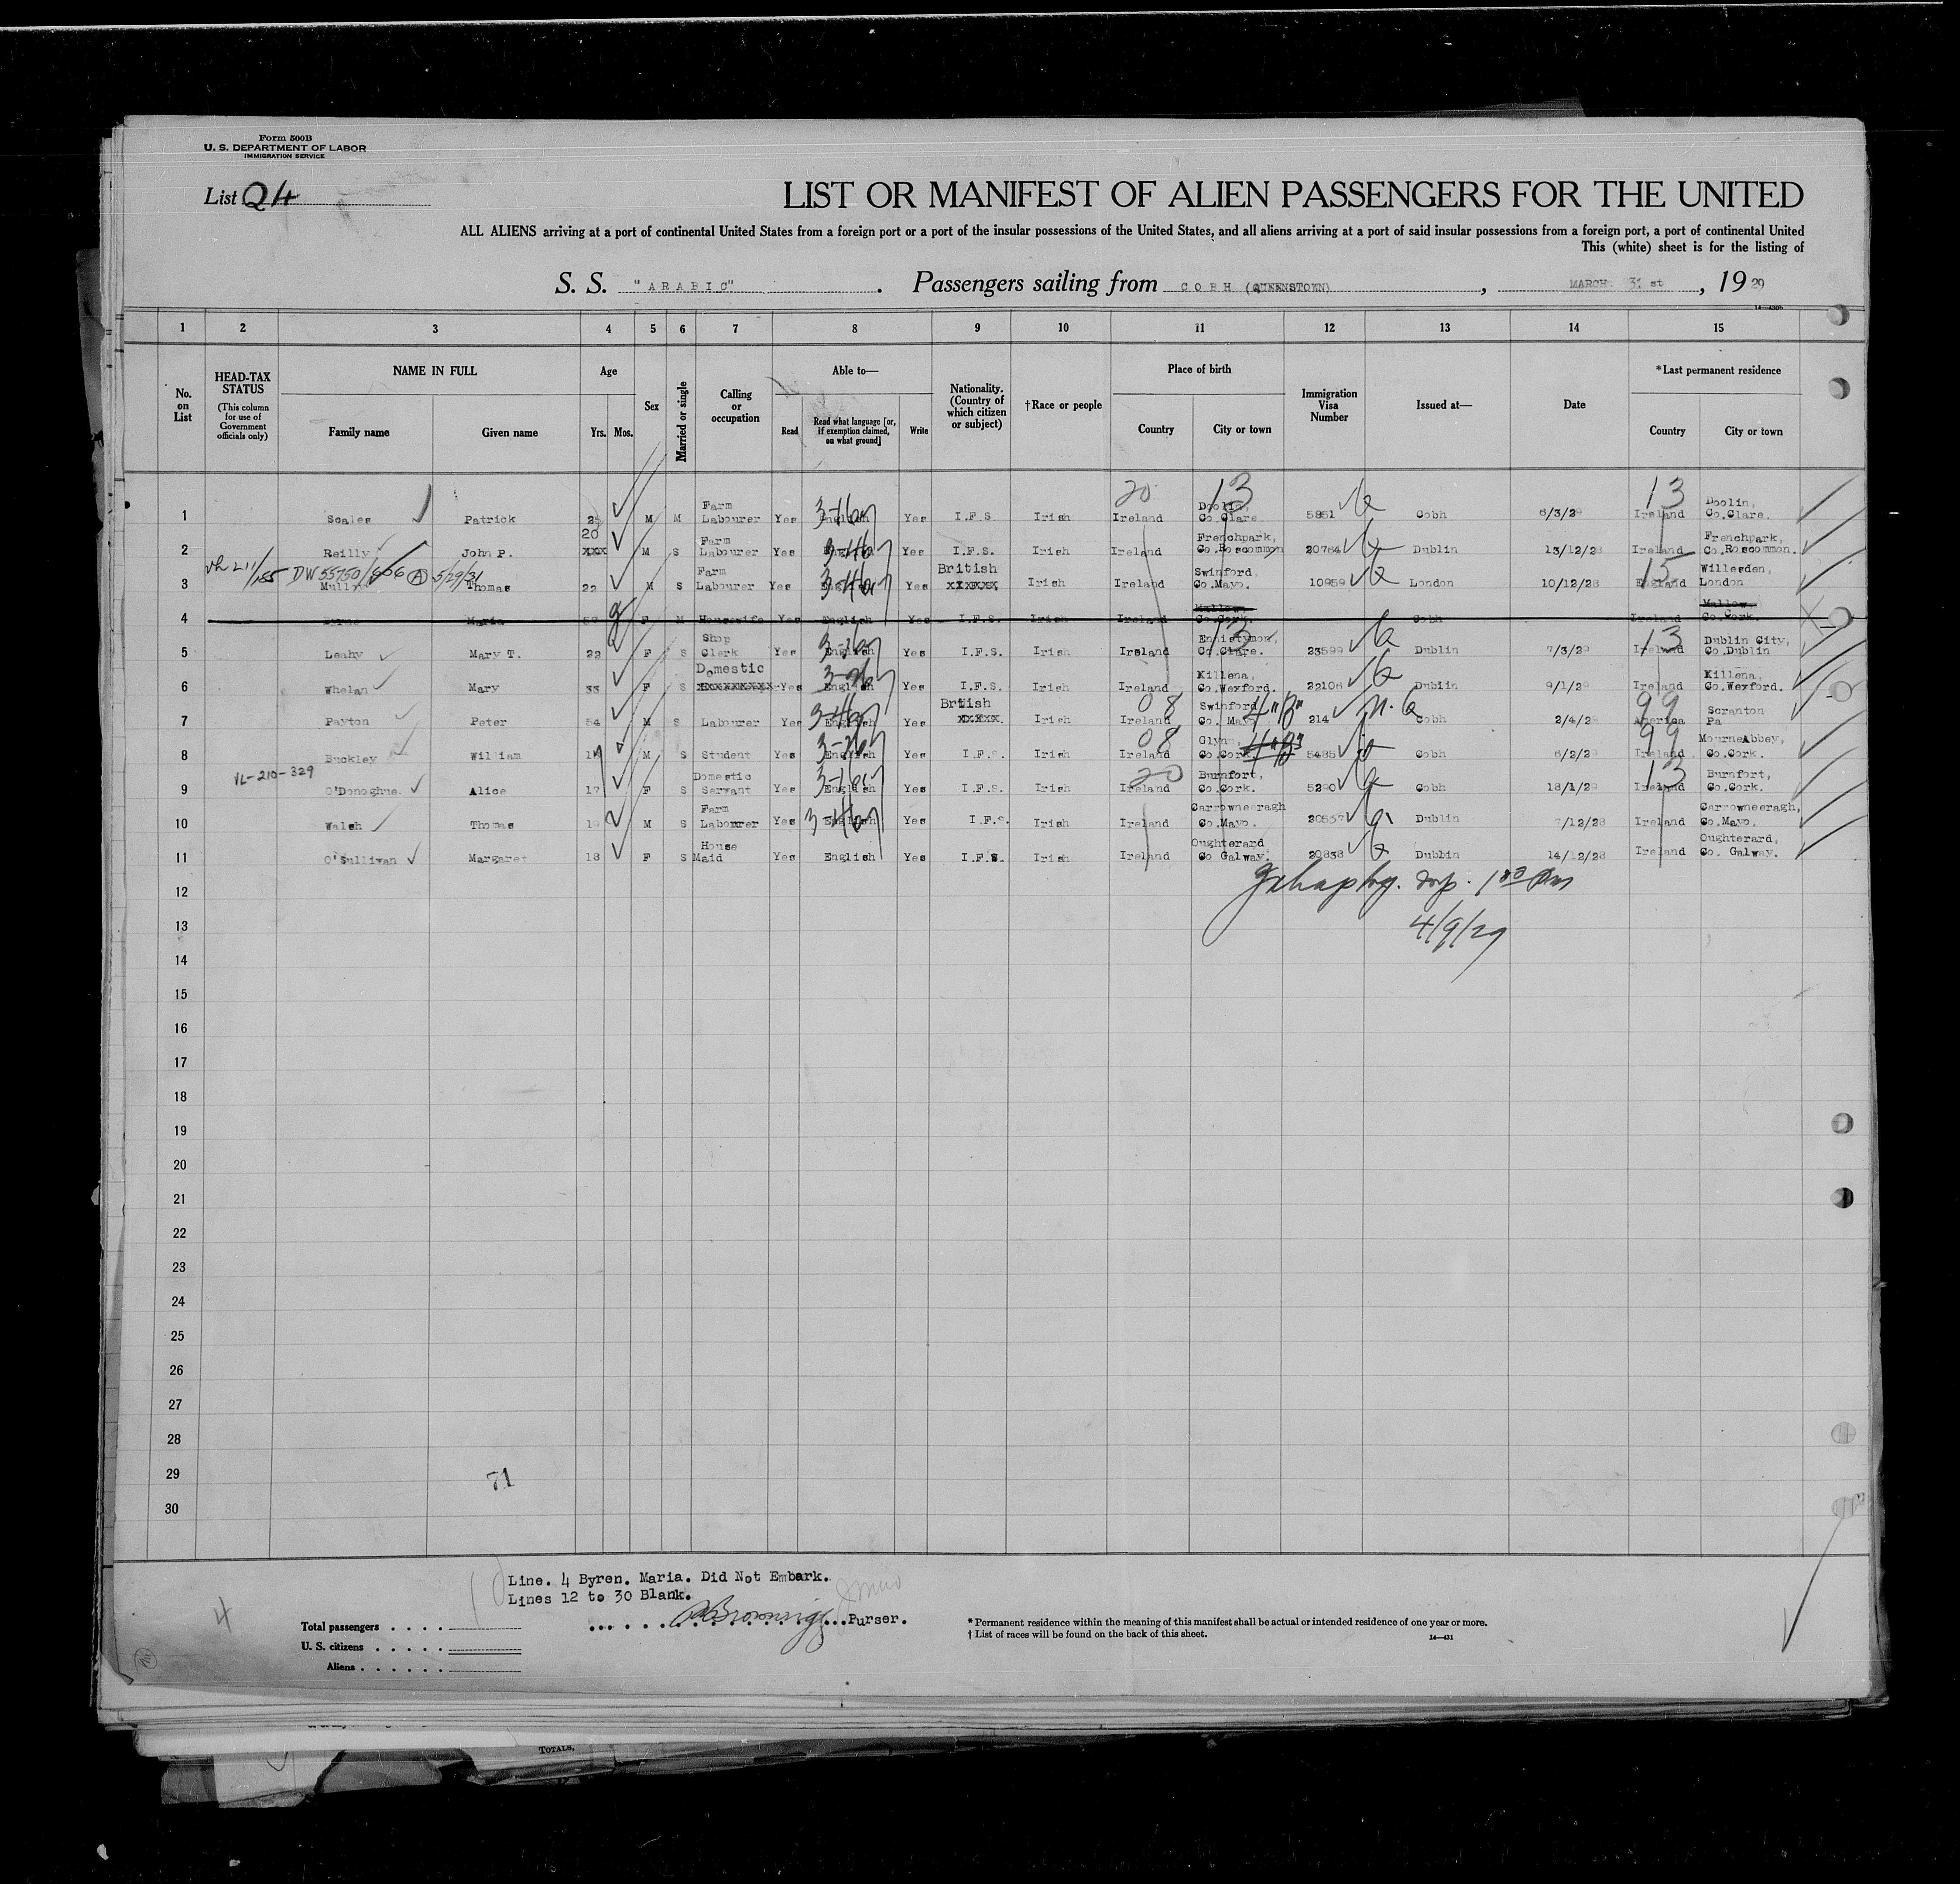 Form 500B
U. S. DEPARTMENT OF LABOR
IMMIGRATION SERVICE
List 24
LIST OR MANIFEST OF ALIEN PASSENGERS FOR THE UNITED
ALL ALIENS arriving at a port of continental United States from a foreign port or a port of the insular possessions of the United States, and all aliens arriving at a port of said insular possessions from a foreign port, a port of continental United
This (white) sheet is for the listing of
S. S. "ARABIC" . Passengers sailing from COBH (QUEENSTOWN) , MARCH 31st , 1929
1 2 3 4 5 6 7 8 9 10 11 12 13 14 15
No. on List
HEAD-TAX STATUS
(This column for use of Government officials only)
NAME IN FULL
Family name Given name
Age
Yrs. Mos.
Sex
Married or single
Calling or occupation
Able to—
Read Read what language [or, if exemption claimed, on what ground] Write
Nationality. (Country of which citizen or subject)
†Race or people
Place of birth
Country City or town
Immigration Visa Number
Issued at—
Date
*Last permanent residence
Country City or town
20 13 13
1 Scales Patrick 25 M M Farm Labourer Yes English Yes I.F.S Irish Ireland Doolin, Co.Clare. 5851 Cobh 6/3/29 Ireland Doolin, Co.Clare.
2 Reilly John P. 20 xxx M S Farm Labourer Yes English Yes I.F.S. Irish Ireland Frenchpark, Co.Roscommon 20784 Dublin 13/12/28 Ireland Frenchpark, Co.Roscommon.
DW 55750/656 (A) 5/29/31
3 Mulloy Thomas 22 M S Farm Labourer Yes English Yes British XXXXXX Irish Ireland Swinford, Co.Mayo. 10959 London 10/12/28 15 England Willesden, London
4 Byrne Maria F M Housewife Yes English Yes I.F.S. Irish Ireland Mallow, Co.Cork. Cobh Ireland Mallow, Co.Cork.
5 Leahy Mary T. 22 F S Shop Clerk Yes English Yes I.F.S. Irish Ireland Ennistymon, Co.Clare. 23599 Dublin 7/3/29 13 Ireland Dublin City, Co.Dublin
6 Whelan Mary 33 F S Domestic Yes English Yes I.F.S. Irish Ireland Killena, Co.Wexford. 22106 Dublin 9/1/29 Ireland Killena, Co.Wexford.
7 Payton Peter 54 M S Labourer Yes English Yes Brtish XXXXX Irish 08 Ireland Swinford Co. Mayo 4"B" 214 N. Q Cobh 2/4/29 99 America Scranton Pa
8 Buckley William M S Student Yes English Yes I.F.S. Irish 08 Ireland Glynn, Co.Cork 5485 Cobh 6/2/29 99 Ireland MourneAbbey, Co.Cork.
VL-210-329
9 O'Donoghue Alice 17 F S Domestic Servant Yes English Yes I.F.S. Irish 20 Ireland Burnfort, Co.Cork. 5290 Cobh 18/1/29 13 Ireland Burnfort, Co.Cork.
10 Walsh Thomas 19 M S Farm Labourer Yes English Yes I.F.S. Irish Ireland Carrowneeragh Co.Mayo. 20557 Dublin 7/12/28 Ireland Carrowneeragh, Co.Mayo.
11 O'Sullivan Margaret 18 F S House Maid Yes English Yes I.F.S. Irish Ireland Oughterard Co Galway. 20838 Dublin 14/12/28 Ireland Oughterard, Co. Galway.
12
4/9/29
13
14
15
16
17
18
19
20
21
22
23
24
25
26
27
28
29 71
30
Line. 4 Byren. Maria. Did Not Embark.
Lines 12 to 30 Blank.
Browning Purser.
4
Total passengers . . . .
U. S. citizens . . . . .
Aliens . . . . . .
* Permanent residence within the meaning of this manifest shall be actual or intended residence of one year or more.
† List of races will be found on the back of this sheet.
14—431
TOTALS,